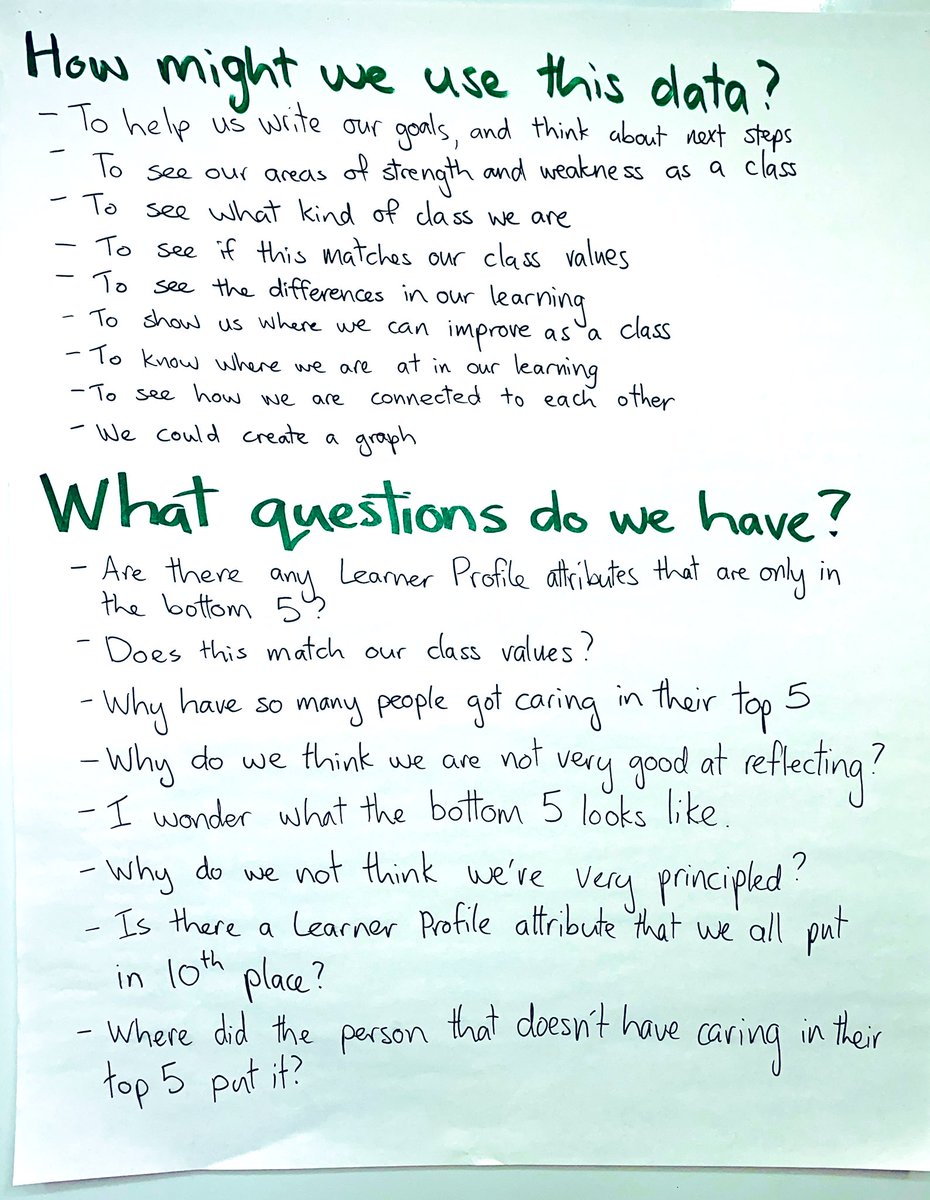 How might we use this data?
- To help us write our goals, and think about next steps
- To see our areas of strength and weakness as a class
- To see what kind of class we are
- To see if this matches our class values
- To see the differences in our learning
- To show us where we can improve as a class
- To know where we are at in our learning
- To see how we are connected to each other
- We could create a graph
What questions do we have?
- Are there any Learner Profile attributes that are only in
the bottom 5?
- Does this match our class values?
- Why have so many people got caring in their top 5
- Why do we think we are not very good at reflecting?
- I wonder what the bottom 5 looks like.
- Why do we not think we've very principled?
- Is there a Learner Profile attribute that we all put
in 10th place?
- Where did the person that doesn't have caring in their
top 5 put it?